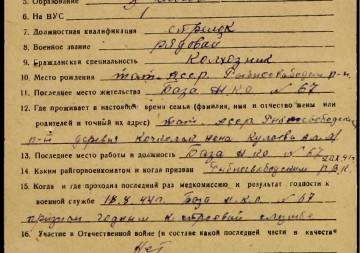 5. Образование
6. На ВУС 1
7. Должностная квалификация стрелок
8. Военное звание рядовой
9. Гражданская специальность Колхозник
10. Место рождения Тат. АССР. Рыбнослободский р-н
11. Последнее место жительства База НКО № 67
12. Где проживает в настоящее время семья (фамилия, имя и отчество жены или
родителей и точный их адрес) Тат. АССР Рыбнослободский
р-н деревня жена
13. Последнее место работы и должность База НКО № 67
14. Каким райгорвоенкоматом и когда призван Рыбнослободским Р.В.К.
15. Когда и где проходил последний раз медкомиссию и результат годности к
военной службе База НКО № 67
признан годным к строевой службе
16. Участие в Отечественной войне (в составе какой последней части и в качестве
Нет